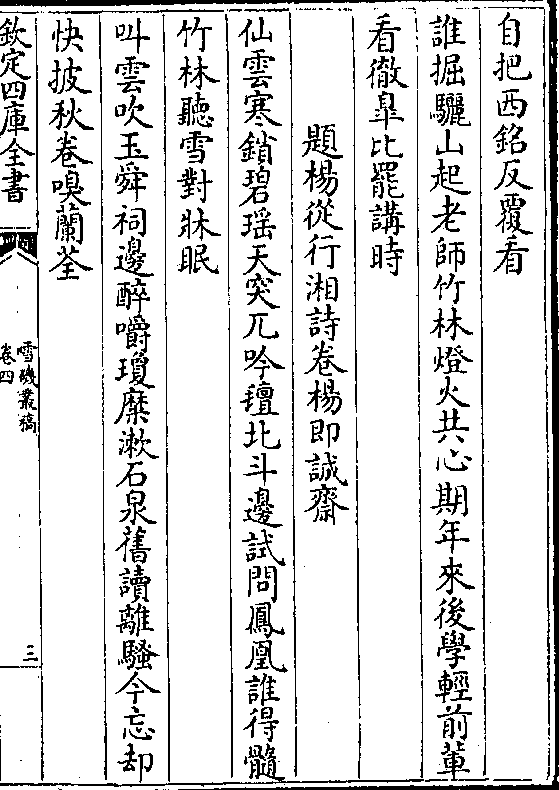 自把西銘反覆看
誰掘驪山起老師竹林燈火共心期年來後學輕前輩
看徹臯比罷講時
題楊從行湘詩卷楊即誠齋
仙雲寒鎖碧瑶天突兀吟壇北斗邊試問鳳凰誰得髓
竹林聽雪對牀眠
叫雲吹玉舜祠邊醉嚼瓊糜漱石泉舊讀離騷今忘却
快披秋卷嗅蘭荃
欽定四庫全書
雪磯叢稿
卷四
三